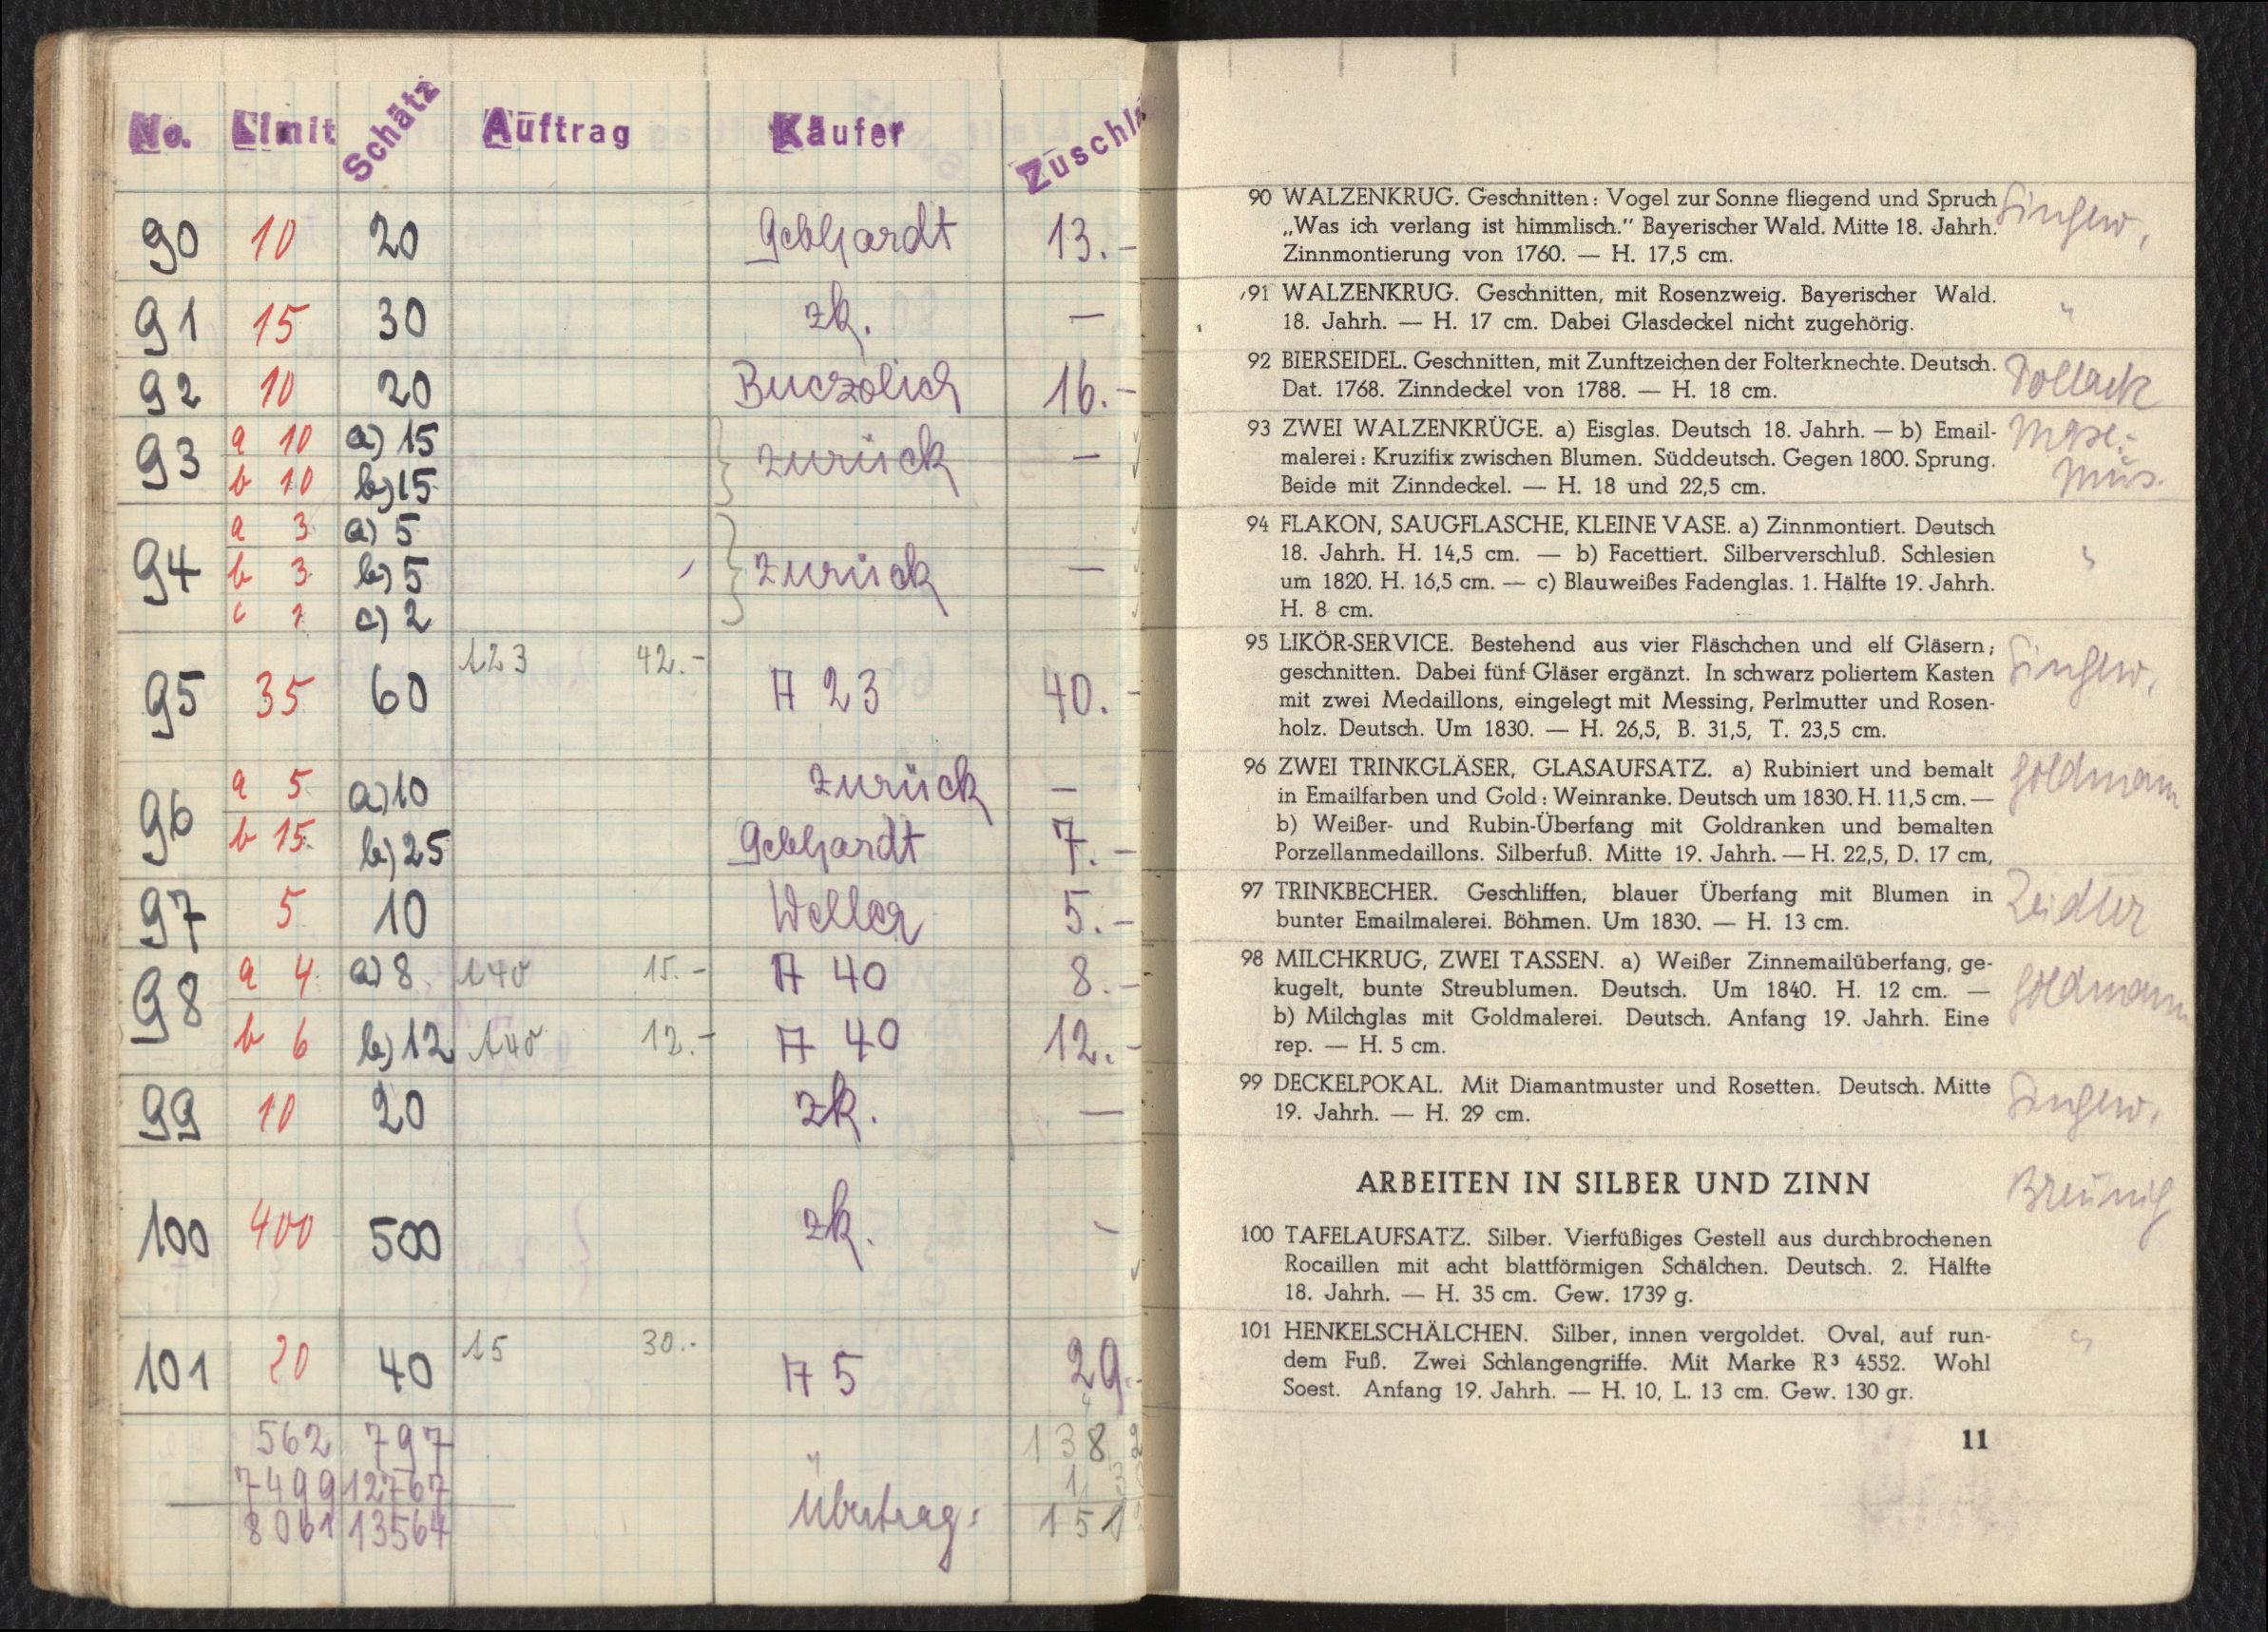 No. Limit Schätz Auftrag Käufer Zuschl
90 10 20 Gebhardt 13.-
91 15 30 zk. —
92 10 20 Buczolich 16.-
93 a 10 a) 15 zurück —
b 10 b) 15
94 a 3 a) 5
b 3 b) 5 zurück —
c 1 c) 2
95 35 60 123 42.- A 23 40.-
96 a 5 a) 10 zurück —
b 15 b) 25 Gebhardt 7.-
97 5 10 Weller 5.-
98 a 4 a) 8 140 15.- A 40 8.-
b 6 b) 12 140 12.- A 40 12.-
99 10 20 zk. —
100 400 500 zk. -
101 20 40 15 30.- A 5 29.-
562 797 138
7499 12767
8061 13564 Übertrag: 151
90 WALZENKRUG. Geschnitten: Vogel zur Sonne fliegend und Spruch
„Was ich verlang ist himmlisch.“ Bayerischer Wald. Mitte 18. Jahrh.
Zinnmontierung von 1760. — H. 17,5 cm.
91 WALZENKRUG. Geschnitten, mit Rosenzweig. Bayerischer Wald. "
18. Jahrh. — H. 17 cm. Dabei Glasdeckel nicht zugehörig.
92 BIERSEIDEL. Geschnitten, mit Zunftzeichen der Folterknechte. Deutsch. Pollack
Dat. 1768. Zinndeckel von 1788. — H. 18 cm.
93 ZWEI WALZENKRÜGE. a) Eisglas. Deutsch 18. Jahrh. — b) Email-
malerei: Kruzifix zwischen Blumen. Süddeutsch. Gegen 1800. Sprung. Mus.
Beide mit Zinndeckel. — H. 18 und 22,5 cm.
94 FLAKON, SAUGFLASCHE, KLEINE VASE. a) Zinnmontiert. Deutsch
18. Jahrh. H. 14,5 cm. — b) Facettiert. Silberverschluß. Schlesien "
um 1820. H. 16,5 cm. — c) Blauweißes Fadenglas. 1. Hälfte 19. Jahrh.
H. 8 cm.
95 LIKÖR-SERVICE. Bestehend aus vier Fläschchen und elf Gläsern;
geschnitten. Dabei fünf Gläser ergänzt. In schwarz poliertem Kasten
mit zwei Medaillons, eingelegt mit Messing, Perlmutter und Rosen-
holz. Deutsch. Um 1830. — H. 26,5, B. 31,5, T. 23,5 cm.
96 ZWEI TRINKGLÄSER, GLASAUFSATZ. a) Rubiniert und bemalt Goldmann
in Emailfarben und Gold: Weinranke. Deutsch um 1830. H. 11,5 cm. —
b) Weißer- und Rubin-Überfang mit Goldranken und bemalten
Porzellanmedaillons. Silberfuß. Mitte 19. Jahrh. — H. 22,5, D. 17 cm,
97 TRINKBECHER. Geschliffen, blauer Überfang mit Blumen in Zeidler
bunter Emailmalerei. Böhmen. Um 1830. — H. 13 cm.
98 MILCHKRUG, ZWEI TASSEN. a) Weißer Zinnemailüberfang, ge-
kugelt, bunte Streublumen. Deutsch. Um 1840. H. 12 cm. — Goldmann
b) Milchglas mit Goldmalerei. Deutsch. Anfang 19. Jahrh. Eine
rep. — H. 5 cm.
99 DECKELPOKAL. Mit Diamantmuster und Rosetten. Deutsch. Mitte
19. Jahrh. — H. 29 cm.
ARBEITEN IN SILBER UND ZINN Breunig
100 TAFELAUFSATZ. Silber. Vierfüßiges Gestell aus durchbrochenen
Rocaillen mit acht blattförmigen Schälchen. Deutsch. 2. Hälfte
18. Jahrh. — H. 35 cm. Gew. 1739 g.
101 HENKELSCHÄLCHEN. Silber, innen vergoldet. Oval, auf run- "
dem Fuß. Zwei Schlangengriffe. Mit Marke R³ 4552. Wohl
Soest. Anfang 19. Jahrh. — H. 10, L. 13 cm. Gew. 130 gr.
11